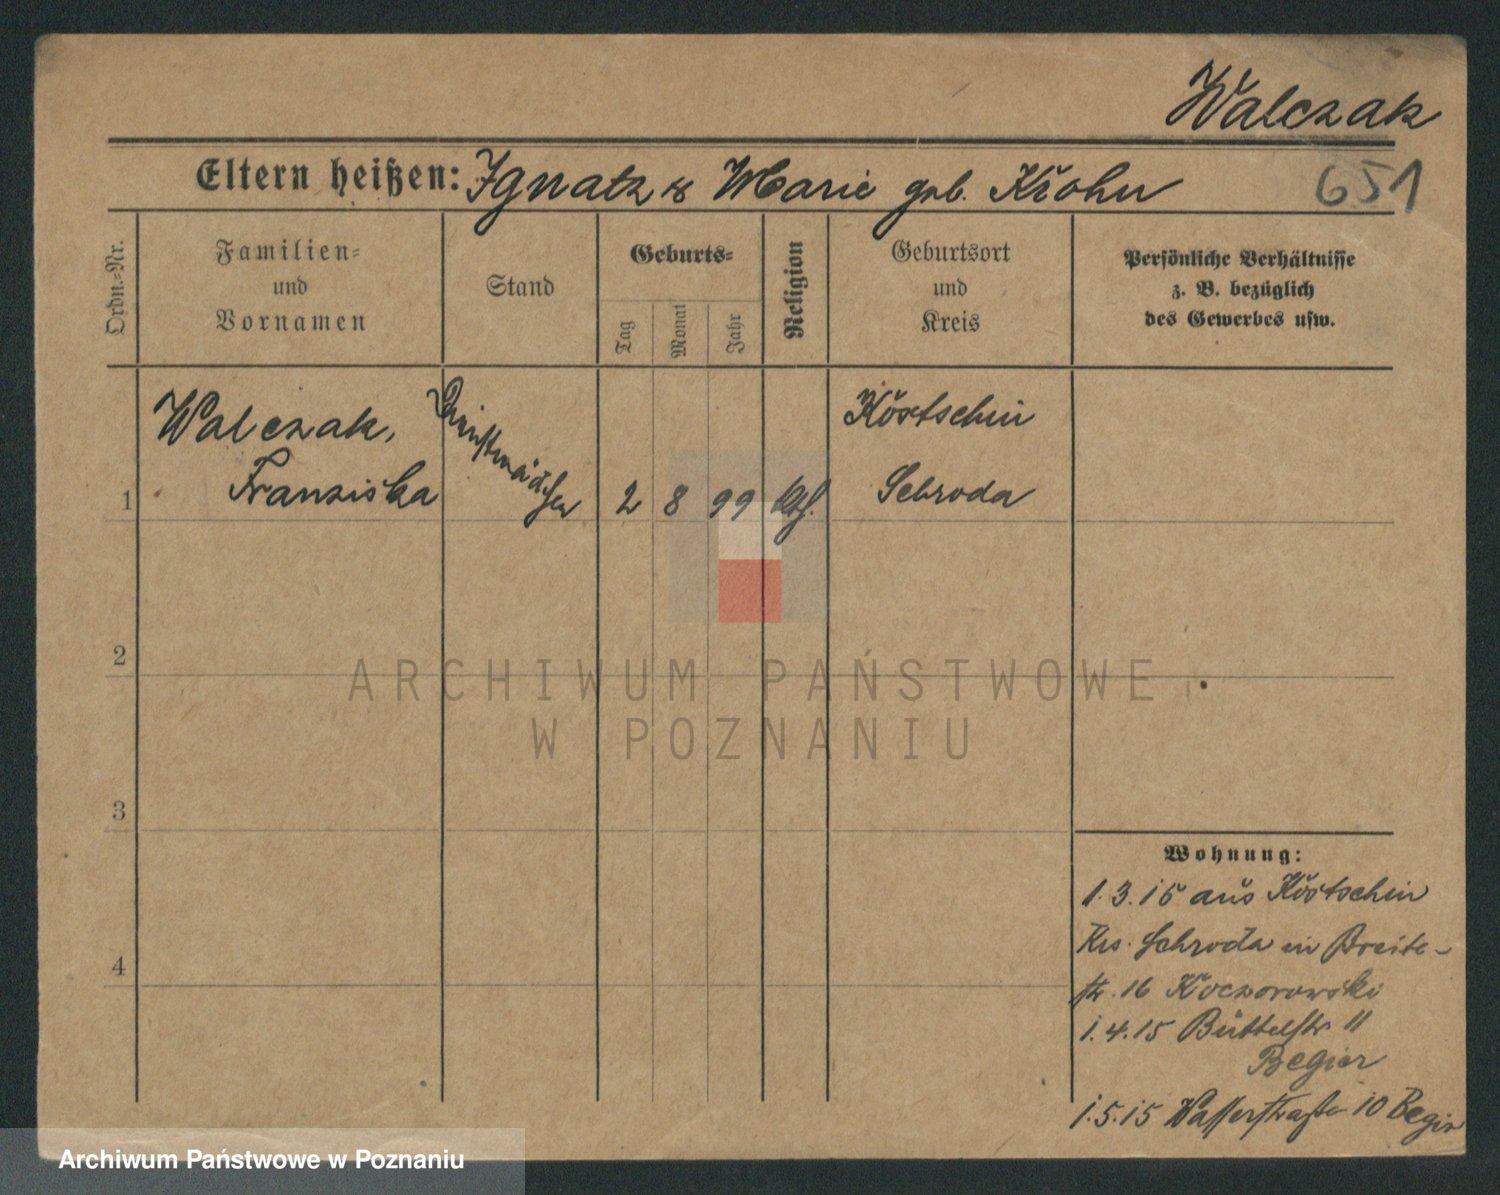 Walczak
Eltern heißen: Ignatz & Marie geb. Krohn
651
Ordn.=Nr.
Familien=
und
Vornamen
Stand
Geburts=
Tag
Monat
Jahr
Religion
Geburtsort
und
Kreis
Persönliche Verhältnisse
z. B. bezüglich
des Gewerbes usw.
1
Walczak,
Franziska
Dienstmädchen
2
8
99
kth.
Köstschin
Schroda
2
3
4
Wohnung:
1.3.15 aus Köstschin
Krs. Schroda in Breite-
str. 16 Koczorowski
1.4.15 Büttelstr 11
Begier
1.5.15 Wasserstraße 10 Begier
ARCHIWUM PAŃSTWOWE
W POZNANIU
Archiwum Państwowe w Poznaniu